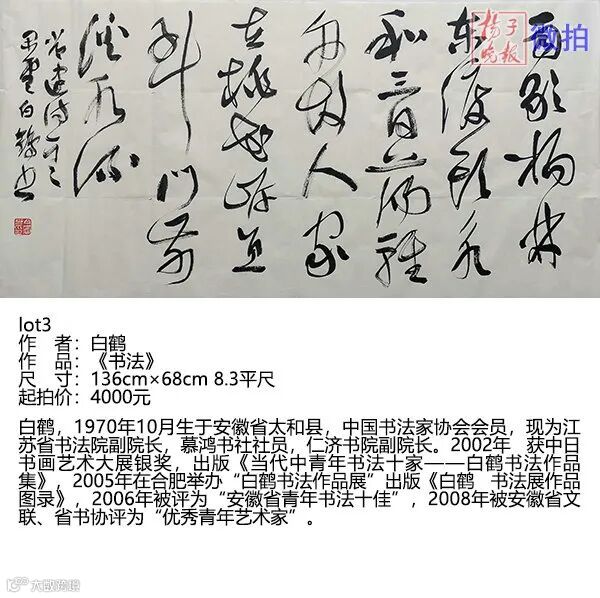 雨歇杨林
东渡头永
和三日荡轻
舟故人家
在桃花岸直
到门前
溪水流
常建诗一首
白鹤书
扬子晚报 微拍
lot3
作 者：白鹤
作 品：《书法》
尺 寸：136cm×68cm 8.3平尺
起拍价：4000元
白鹤，1970年10月生于安徽省太和县，中国书法家协会会员，现为江
苏省书法院副院长，慕鸿书社社员，仁济书院副院长。2002年 获中日
书画艺术大展银奖，出版《当代中青年书法十家——白鹤书法作品
集》，2005年在合肥举办“白鹤书法作品展”出版《白鹤 书法展作品
图录》，2006年被评为“安徽省青年书法十佳”，2008年被安徽省文
联、省书协评为“优秀青年艺术家”。
大数跨境